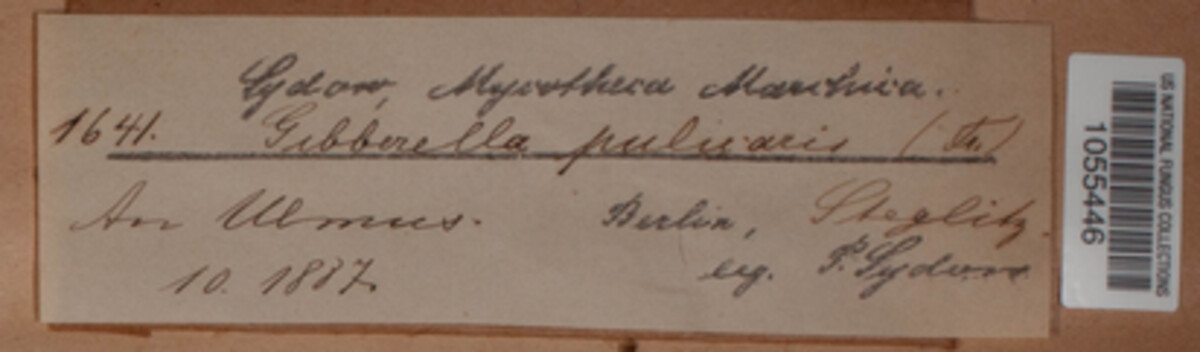 Sydow, Mycotheca Marchica.
1641. Gibberella pulicaris (Fr.)
An Ulmus. Berlin, Steglitz.
10. 1887. leg. P. Sydow
US NATIONAL FUNGUS COLLECTIONS
1055446